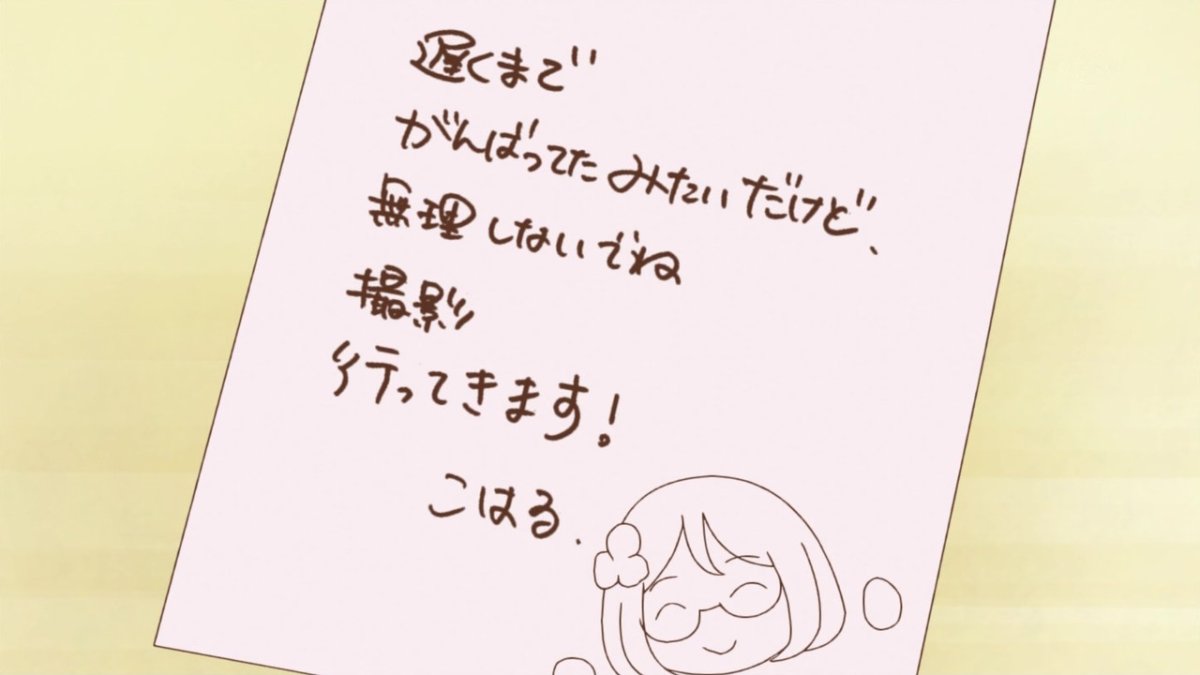 遅くまで
がんばってたみたいだけど、
無理しないでね
撮影
行ってきます!
こはる.